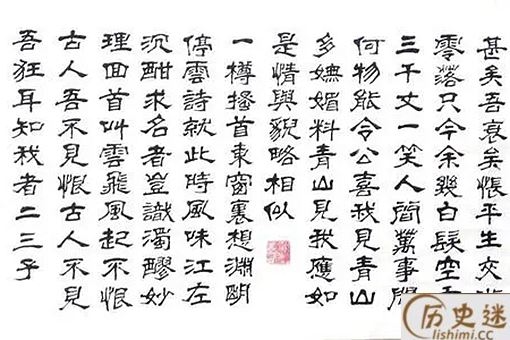 甚矣吾衰矣悵平生交遊
零落只今余幾白髮空
三千丈一笑人間萬事問
何物能令公喜我見青山
多嫵媚料青山見我應如
是情與貌略相似
一樽搔首東窗裏想淵明
停雲詩就此時風味江左
沉酣求名者豈識濁醪妙
理回首叫雲飛風起不恨
古人吾不見恨古人不見
吾狂耳知我者二三子
历史迷
lishimi.cc